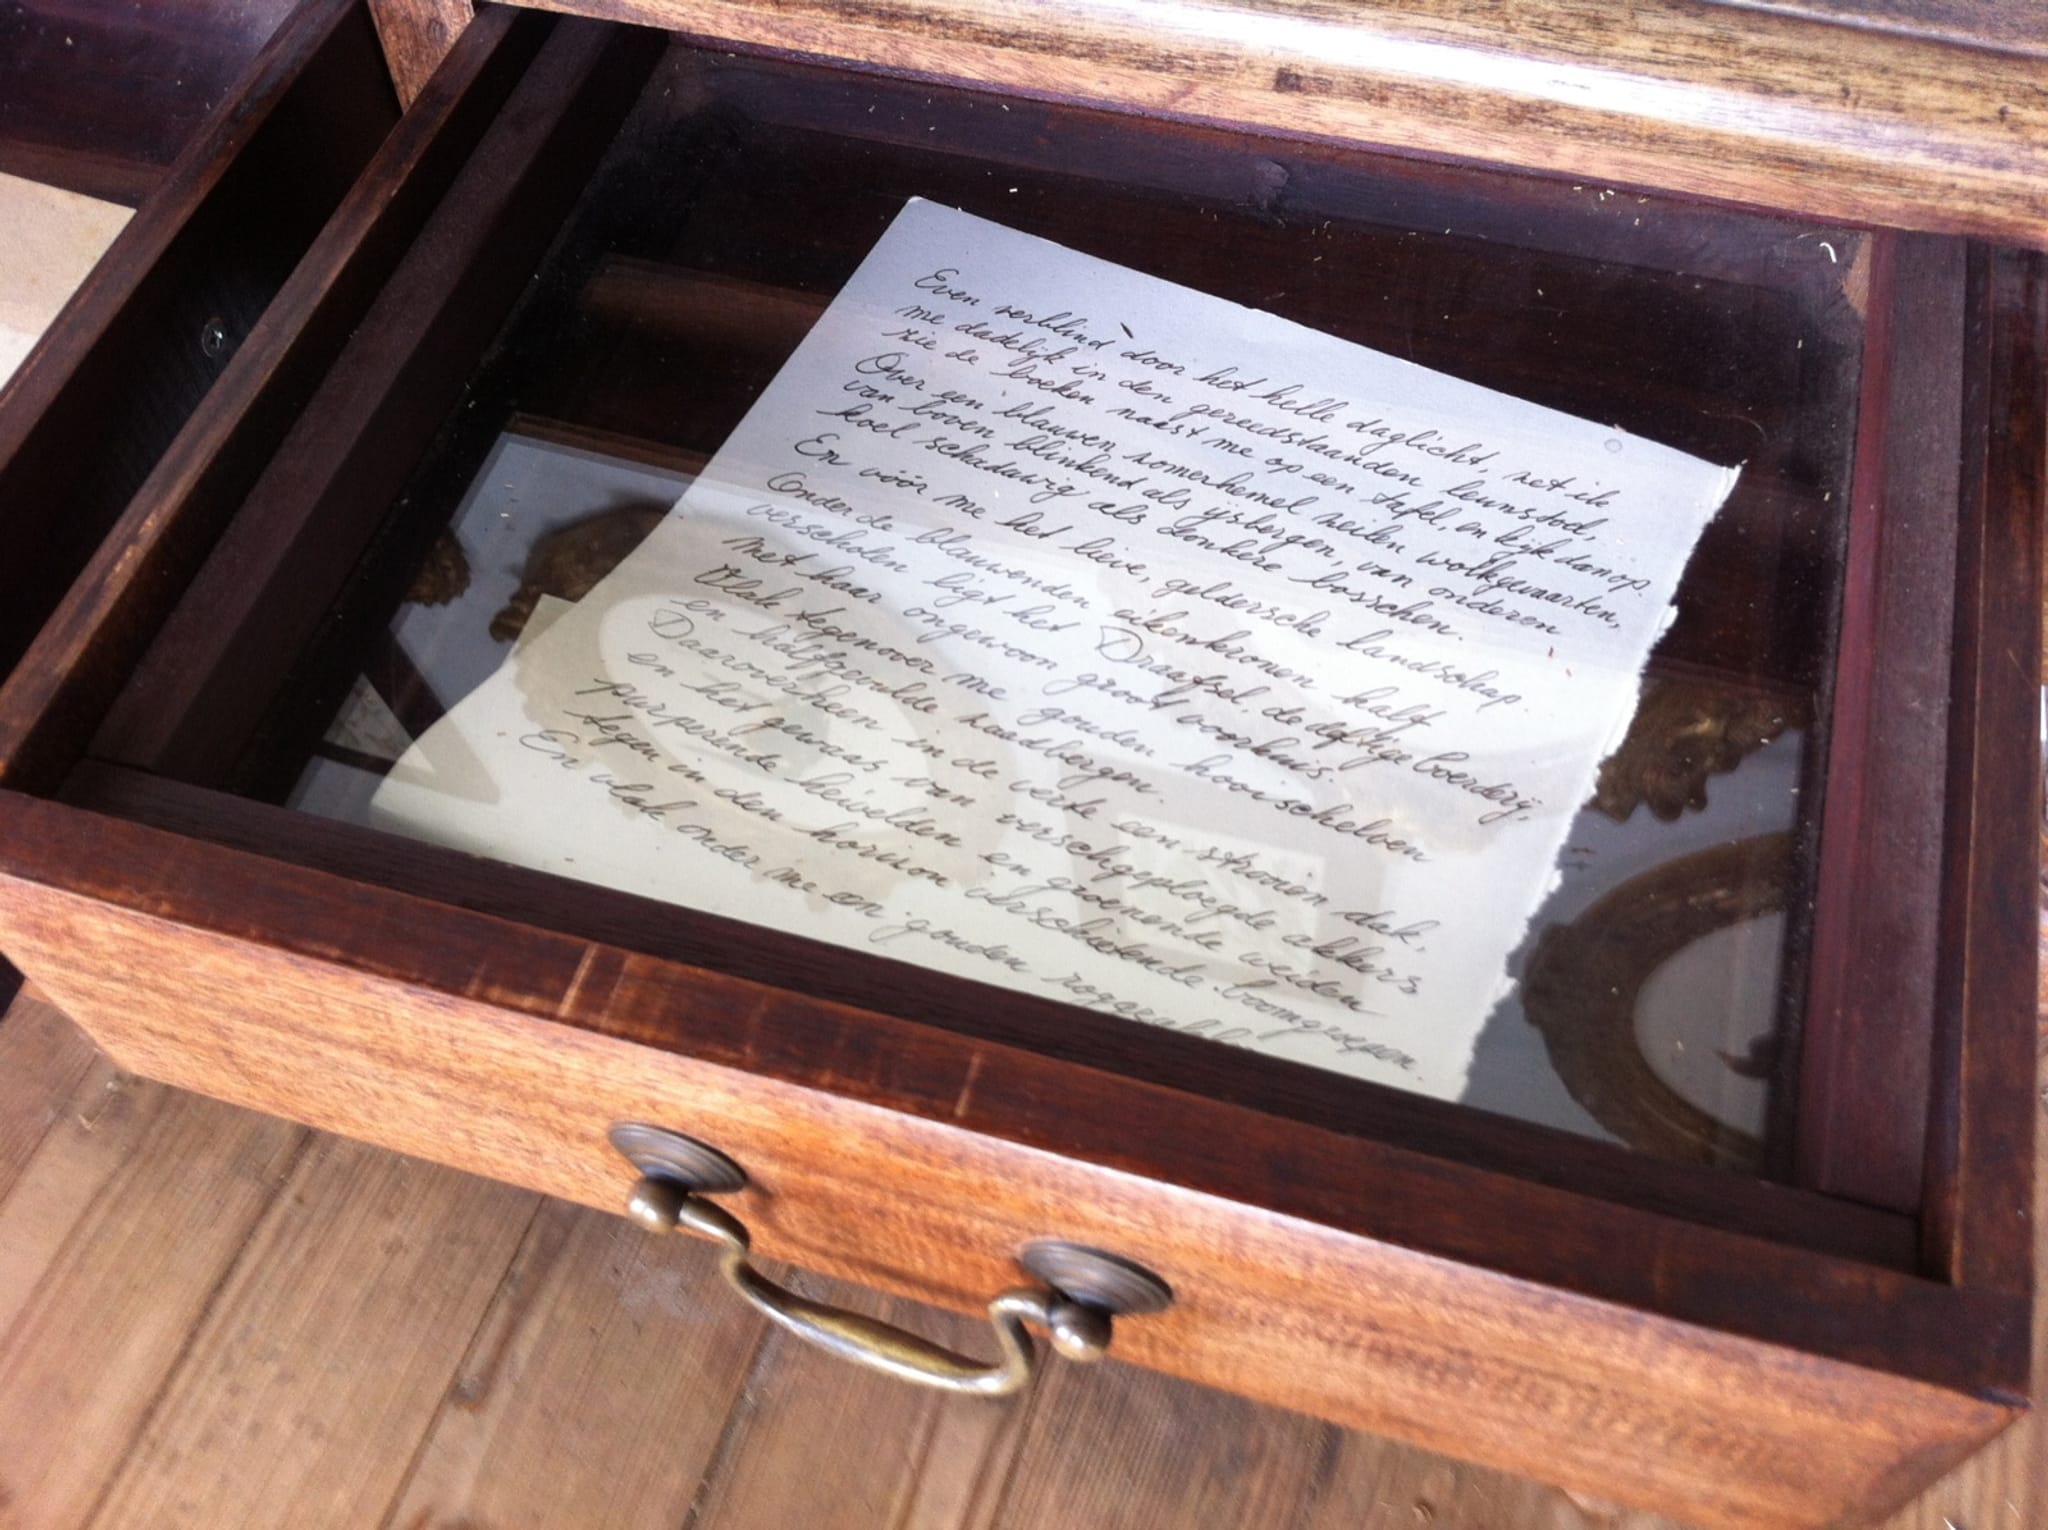 Even verblind door het helle daglicht, zet ik
me dadelijk in den gereedstaanden leunstoel,
zie de boeken naast me op een tafel, en kijk dan op.
Over een blauwen zomerhemel zeilen wolkgevaarten,
van boven blinkend als ijsbergen, van onderen
koel schaduwig als donkere bosschen.
En vóór me het lieve, geldersche landschap.
Onder de blauwenden eikenkronen half
verscholen ligt het Draafsel, de deftige boerderij,
met haar ongewoon groot voorhuis.
Vlak tegenover me gouden hooischelven
en halfgevulde zaadbergen.
Daaroverheen in de verte een strooien dak,
en het gewas van verschgeploegde akkers
purperende heivelden en groenende weiden
tegen in den horizon verschietende boomgroepen.
En vlak onder me een gouden